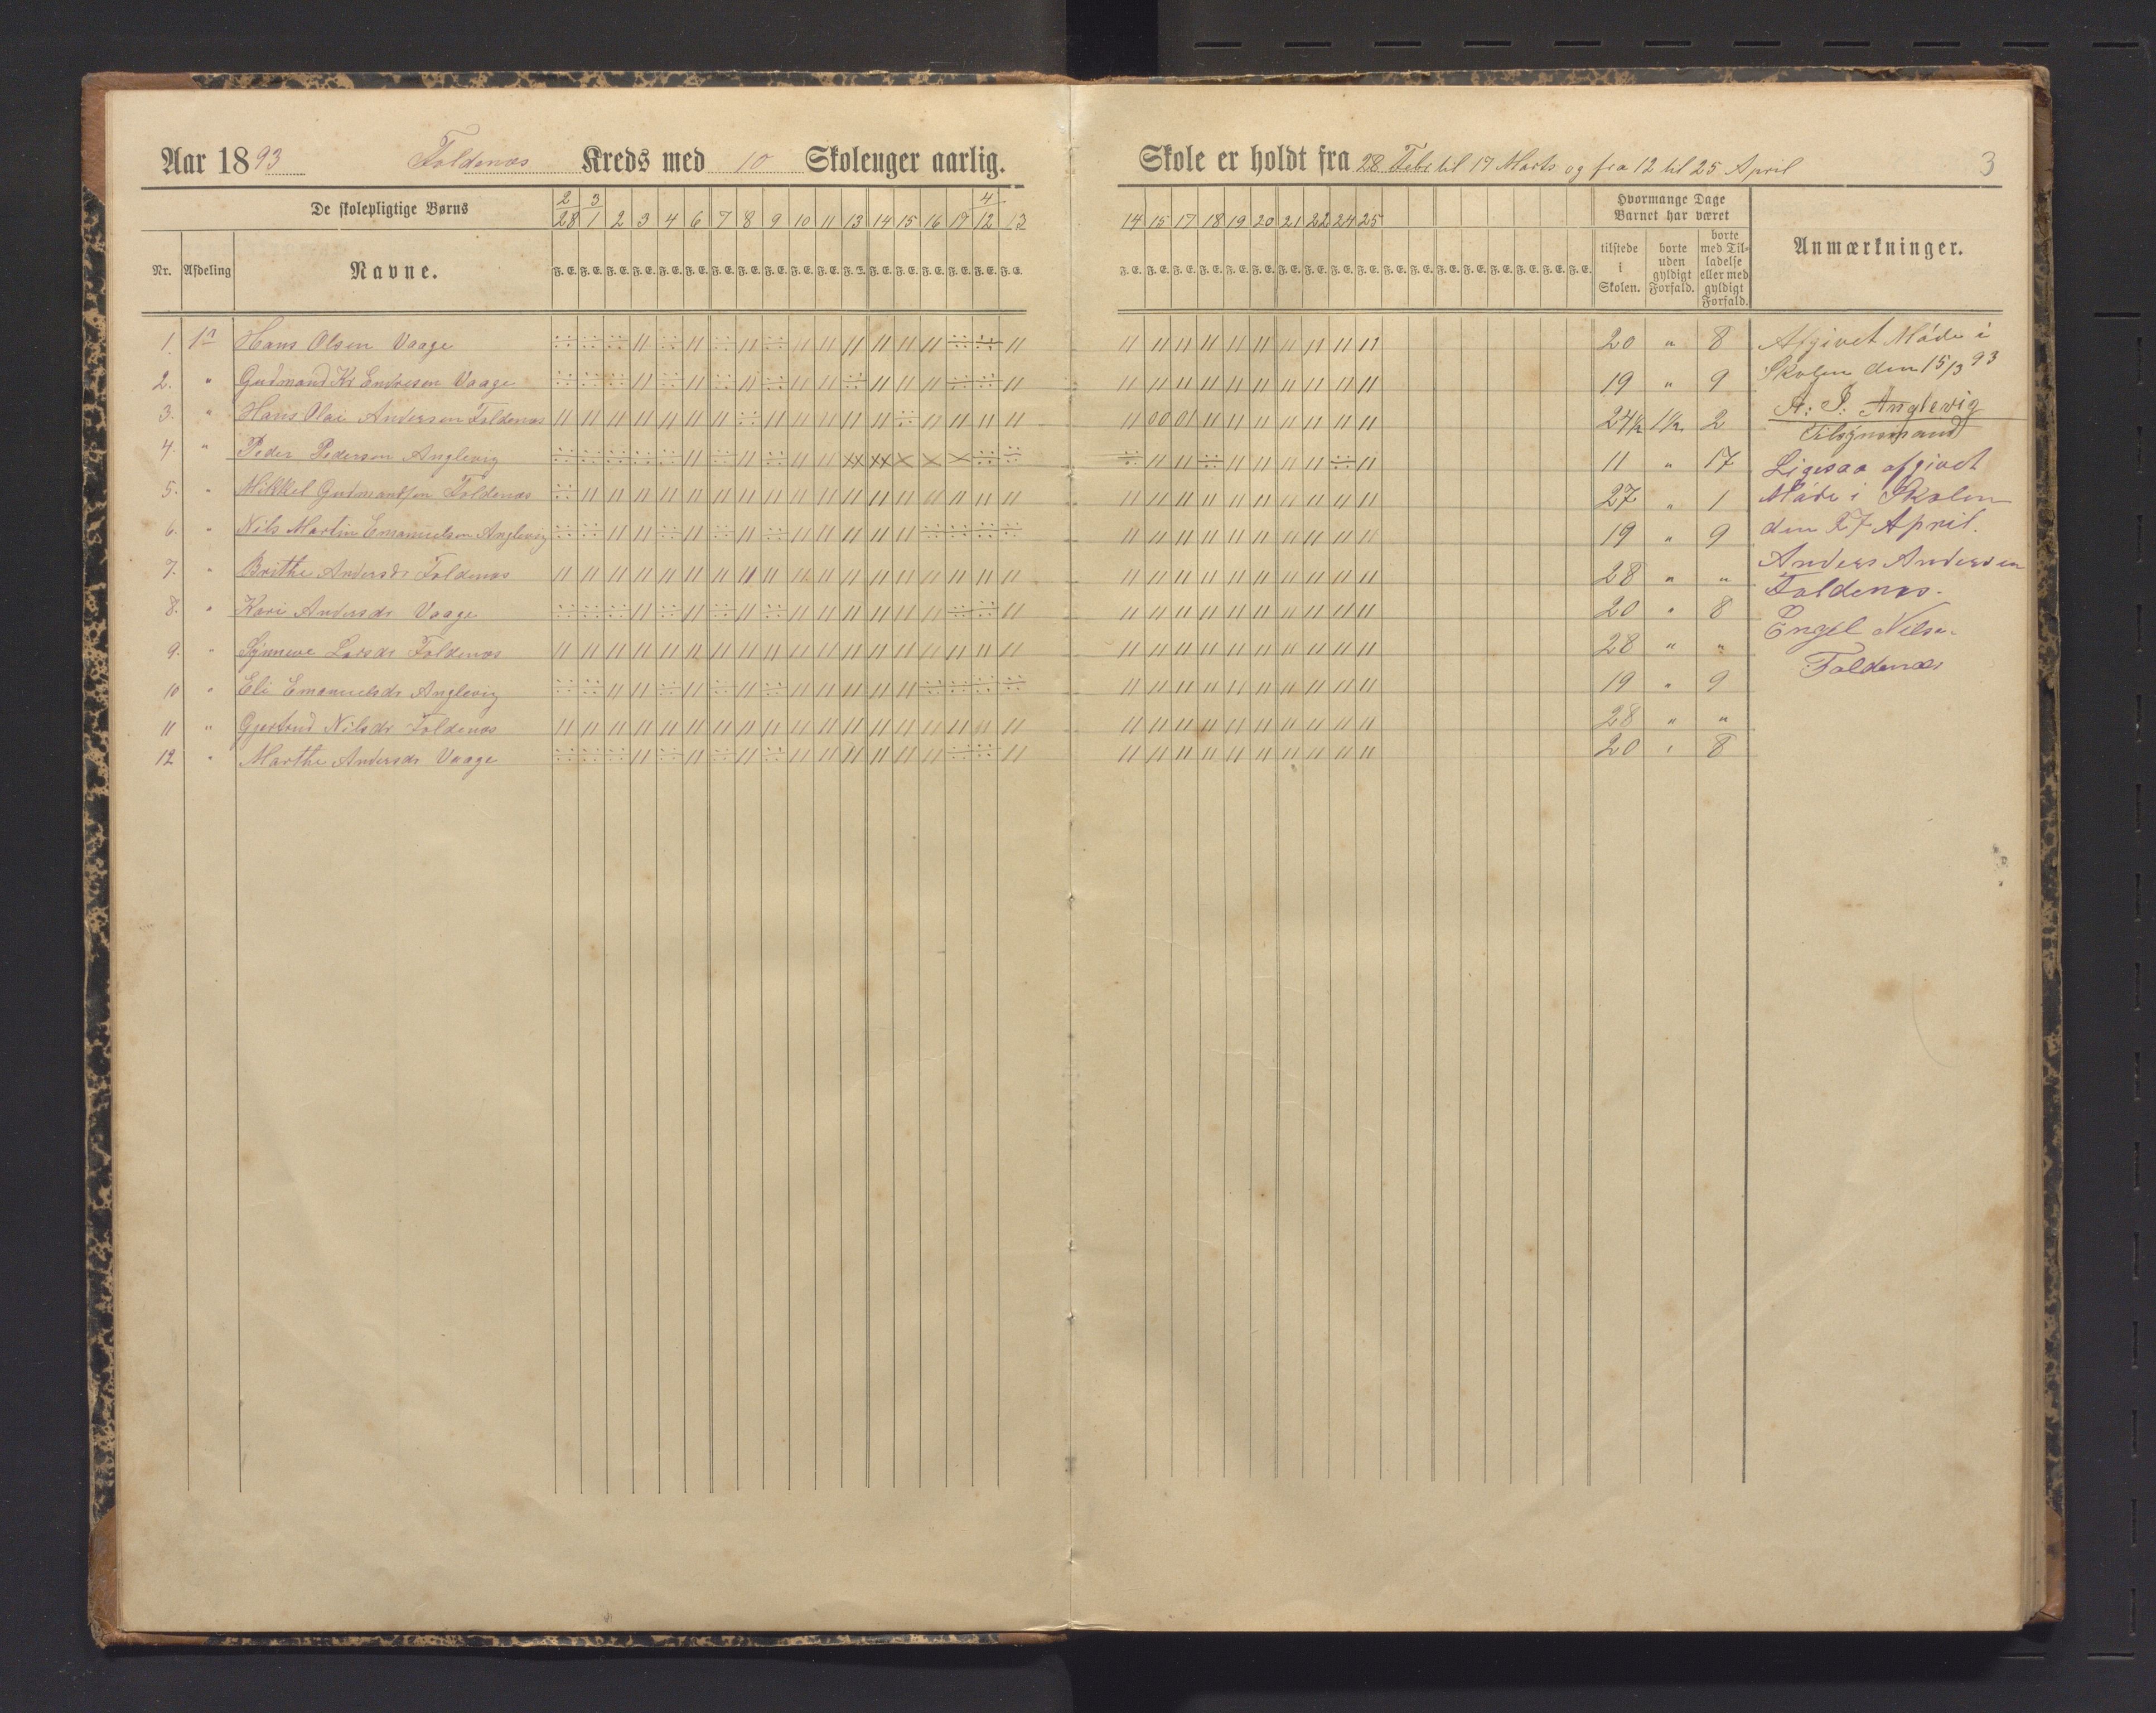 Aar 1893 Foldenæs Kreds med 10 Skoleuger aarlig.
Skole er holdt fra 28 Febr til 17 Marts og fra 12 til 25 April
3
De skolepligtige Børns
2 3 4
28 1 2 3 4 6 7 8 9 10 11 13 14 15 16 17 12 13
14 15 17 18 19 20 21 22 24 25
Hvormange Dage
Barnet har været
Nr. Afdeling Navne.
F. E. F. E. F. E. F. E. F. E. F. E. F. E. F. E. F. E. F. E. F. E. F. E. F. E. F. E. F. E. F. E. F. E. F. E.
F. E. F. E. F. E. F. E. F. E. F. E. F. E. F. E. F. E. F. E. F. E. F. E. F. E. F. E. F. E. F. E. F. E. F. E.
tilstede
i
Skolen.
borte
uden
gyldigt
Forfald.
borte
med Til-
ladelse
eller med
gyldigt
Forfald.
Anmærkninger.
1. 1n Hans Olsen Vaage 20 " 8
2. " Gudmand Kr Endresen Vaage 19 " 9
3. " Hans Olai Andersen Foldenæs 24½ 1½ 2
4. " Peder Pederson Anglevig 11 " 17
5. " Mikkel Gudmandsen Foldenæs 27 " 1
6. " Nils Martin Emanuelsen Anglevig 19 " 9
7. " Brithe Andersdr Foldenæs 28 " "
8. " Kari Andersdr Vaage 20 " 8
9. " Synneve Larsdr Foldenæs 28 " "
10 " Eli Emanuelsdr Anglevig 19 " 9
11 " Gjertrud Nilsdr Foldenæs 28 " "
12 " Marthe Andersdr Vaage 20 " 8
Afgivet Møde i
Skolen den 15/3 93
A: P: Anglevig
Tilsynsmand
Ligesaa afgivet
Møde i Skolen
den 17 April.
Anders Andersen
Foldenæs.
Engel Nilsen
Foldenæs